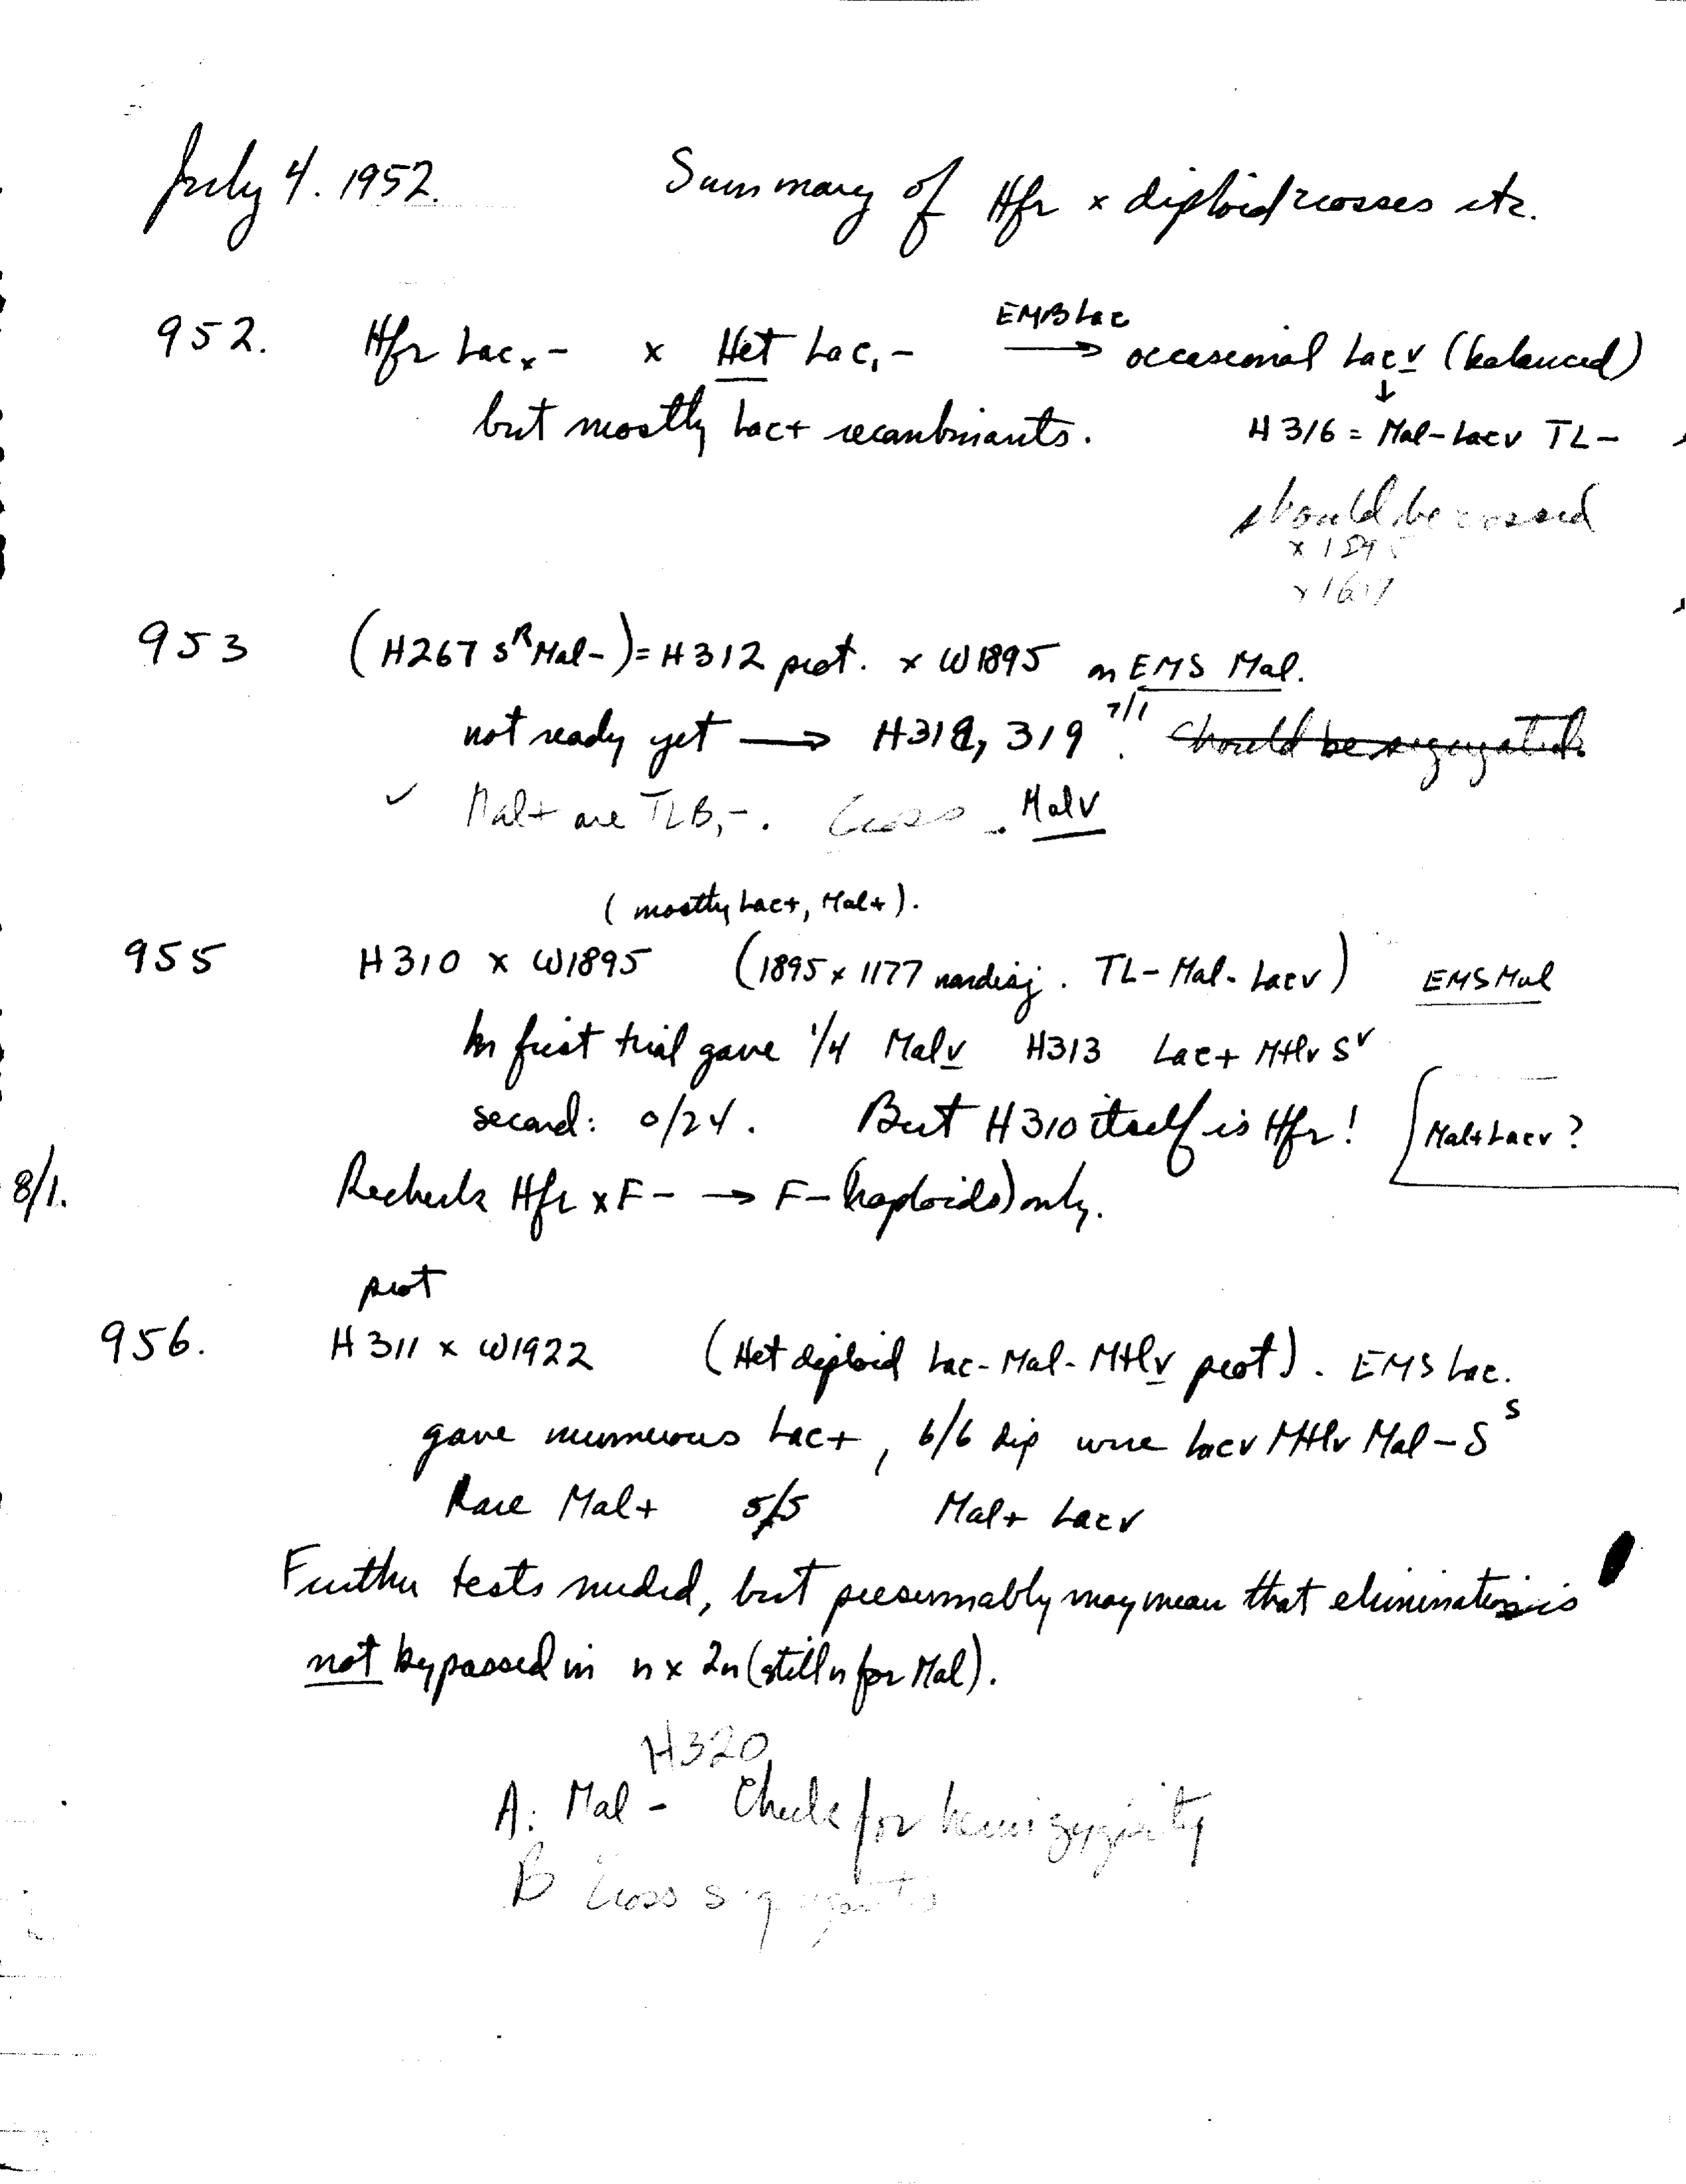 July 4. 1952. Summary of Hfr x diploid crosses etc.
952. Hfr Lacx- x Het Lac1- EMB Lac → occasional Lacv (balanced)
but mostly Lac+ recombinants. ↓ H316 = Mal- Lacv TL-
should be crossed
x 1895
953 (H267 SR Mal-) = H312 prot. x W1895 on EMS Mal.
not ready yet → H318, 319 7/1. should be segregated.
✓ Mal+ are TLB1-. Cross Malv
(mostly Lac+, Mal+).
955 H310 x W1895 (1895 x 1177 nondisj. TL- Mal- Lacv) EMS Mal
In first trial gave 1/4 Malv H313 Lac+ Mtlv Sr
second: 0/24. But H310 itself is Hfr! [Mal+ Lacv?
8/1. Recheck Hfr x F- → F- (haploids) only.
prot
956. H311 x W1922 (Het diploid Lac- Mal- Mtlv prot). EMS Lac.
gave numerous Lac+, 6/6 dip were Lacv Mtlv Mal- Ss
Rare Mal+ 5/5 Mal+ Lacv
Further tests needed, but presumably may mean that elimination is
not bypassed in n x 2n (still n for Mal).
H320
A: Mal - Check for hemizygosity
B Cross segregants